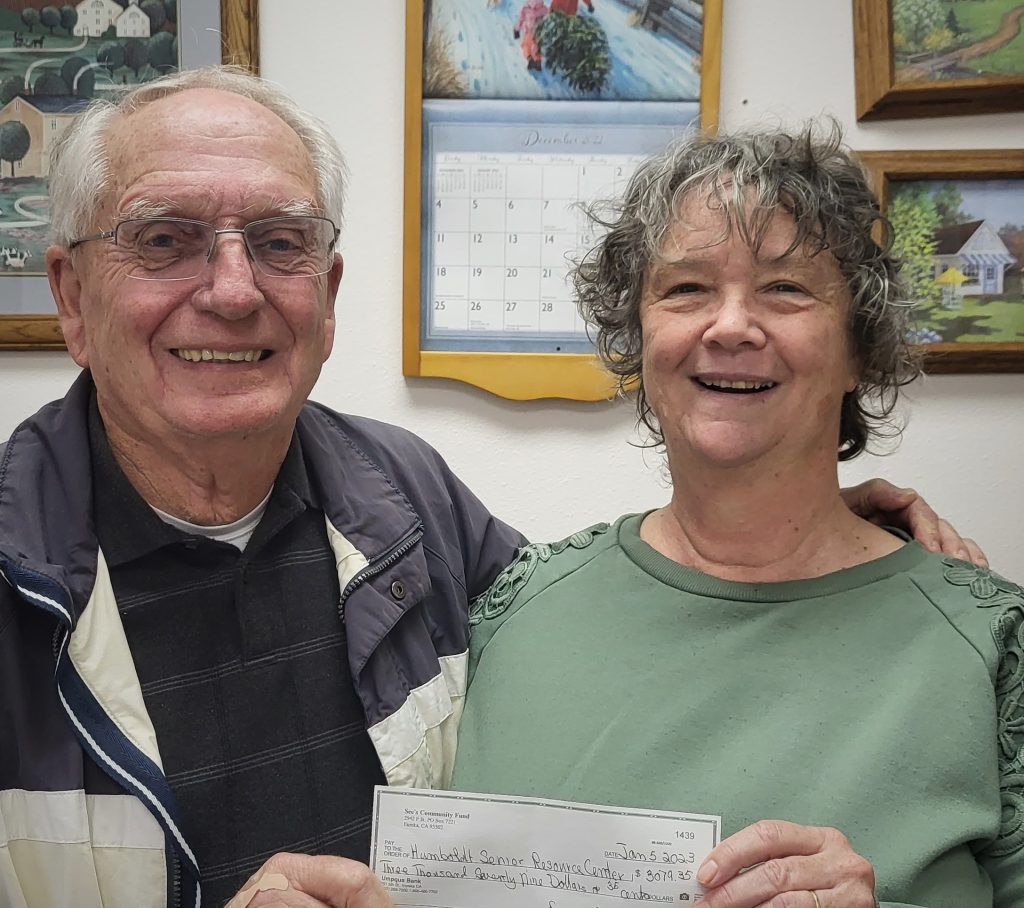 December 2022
Sunday Monday Tuesday
1 2
4 5 6 7
11 12 13 14 15
18 19 20 21
25 26 27 28
See's Community Fund
Eureka, CA
1439
DATE Jan 5 2023
PAY TO THE ORDER OF Humboldt Senior Resource Center $ 3079.35
Three Thousand Seventy Nine Dollars & 35 cents DOLLARS
Umpqua Bank